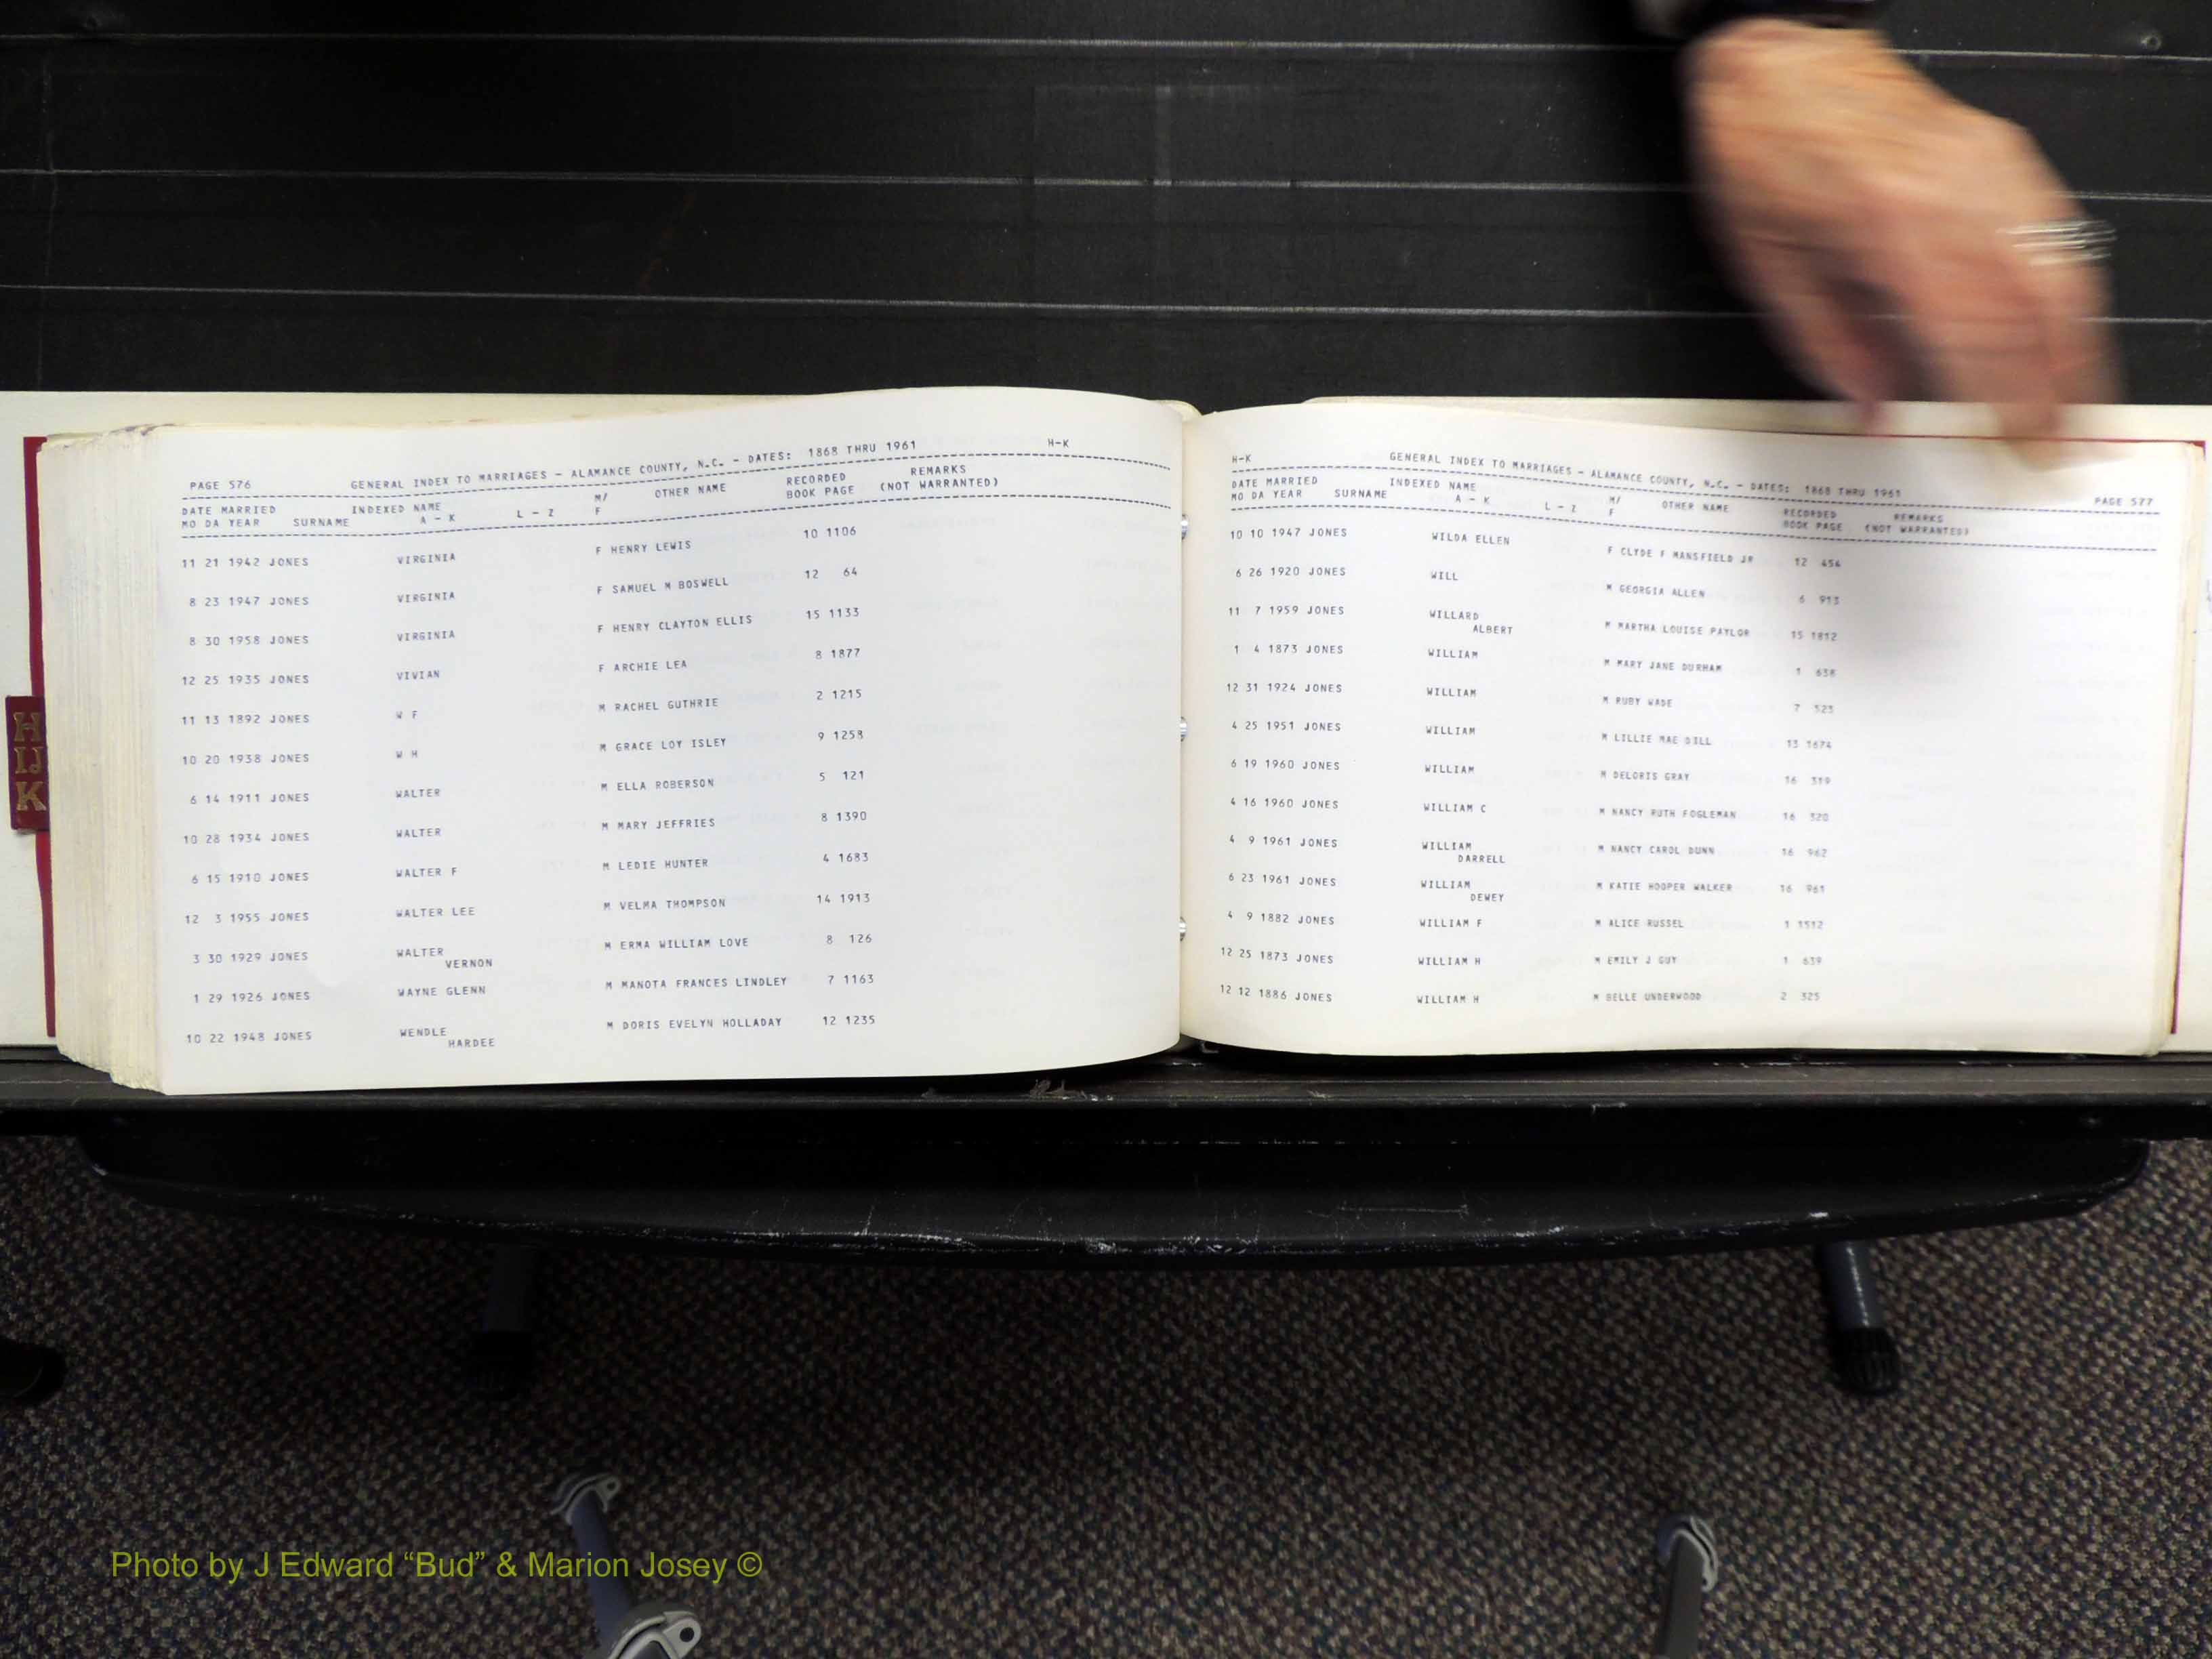 H
IJ
K
PAGE 576 GENERAL INDEX TO MARRIAGES - ALAMANCE COUNTY, N.C. - DATES: 1868 THRU 1961 H-K
DATE MARRIED INDEXED NAME M/ OTHER NAME RECORDED REMARKS
MO DA YEAR SURNAME A - K L - Z F BOOK PAGE (NOT WARRANTED)
11 21 1942 JONES VIRGINIA F HENRY LEWIS 10 1106
8 23 1947 JONES VIRGINIA F SAMUEL M BOSWELL 12 64
8 30 1958 JONES VIRGINIA F HENRY CLAYTON ELLIS 15 1133
12 25 1935 JONES VIVIAN F ARCHIE LEA 8 1877
11 13 1892 JONES W F M RACHEL GUTHRIE 2 1215
10 20 1938 JONES W H M GRACE LOY ISLEY 9 1258
6 14 1911 JONES WALTER M ELLA ROBERSON 5 121
10 28 1934 JONES WALTER M MARY JEFFRIES 8 1390
6 15 1910 JONES WALTER F M LEDIE HUNTER 4 1683
12 3 1955 JONES WALTER LEE M VELMA THOMPSON 14 1913
3 30 1929 JONES WALTER M ERMA WILLIAM LOVE 8 126
VERNON
1 29 1926 JONES WAYNE GLENN M MANOTA FRANCES LINDLEY 7 1163
10 22 1948 JONES WENDLE M DORIS EVELYN HOLLADAY 12 1235
HARDEE
H-K GENERAL INDEX TO MARRIAGES - ALAMANCE COUNTY, N.C. - DATES: 1868 THRU 1961 PAGE 577
DATE MARRIED INDEXED NAME M/ OTHER NAME RECORDED REMARKS
MO DA YEAR SURNAME A - K L - Z F BOOK PAGE (NOT WARRANTED)
10 10 1947 JONES WILDA ELLEN F CLYDE F MANSFIELD JR 12 454
6 26 1920 JONES WILL M GEORGIA ALLEN 6 913
11 7 1959 JONES WILLARD M MARTHA LOUISE PAYLOR 15 1812
ALBERT
1 4 1873 JONES WILLIAM M MARY JANE DURHAM 1 638
12 31 1924 JONES WILLIAM M RUBY WADE 7 523
4 25 1951 JONES WILLIAM M LILLIE MAE DILL 13 1674
6 19 1960 JONES WILLIAM M DELORIS GRAY 16 319
4 16 1960 JONES WILLIAM C M NANCY RUTH FOGLEMAN 16 320
4 9 1961 JONES WILLIAM M NANCY CAROL DUNN 16 962
DARRELL
6 23 1961 JONES WILLIAM M KATIE HOOPER WALKER 16 961
DEWEY
4 9 1882 JONES WILLIAM F M ALICE RUSSEL 1 1512
12 25 1873 JONES WILLIAM H M EMILY J GUY 1 639
12 12 1886 JONES WILLIAM H M BELLE UNDERWOOD 2 325
Photo by J Edward “Bud” & Marion Josey ©